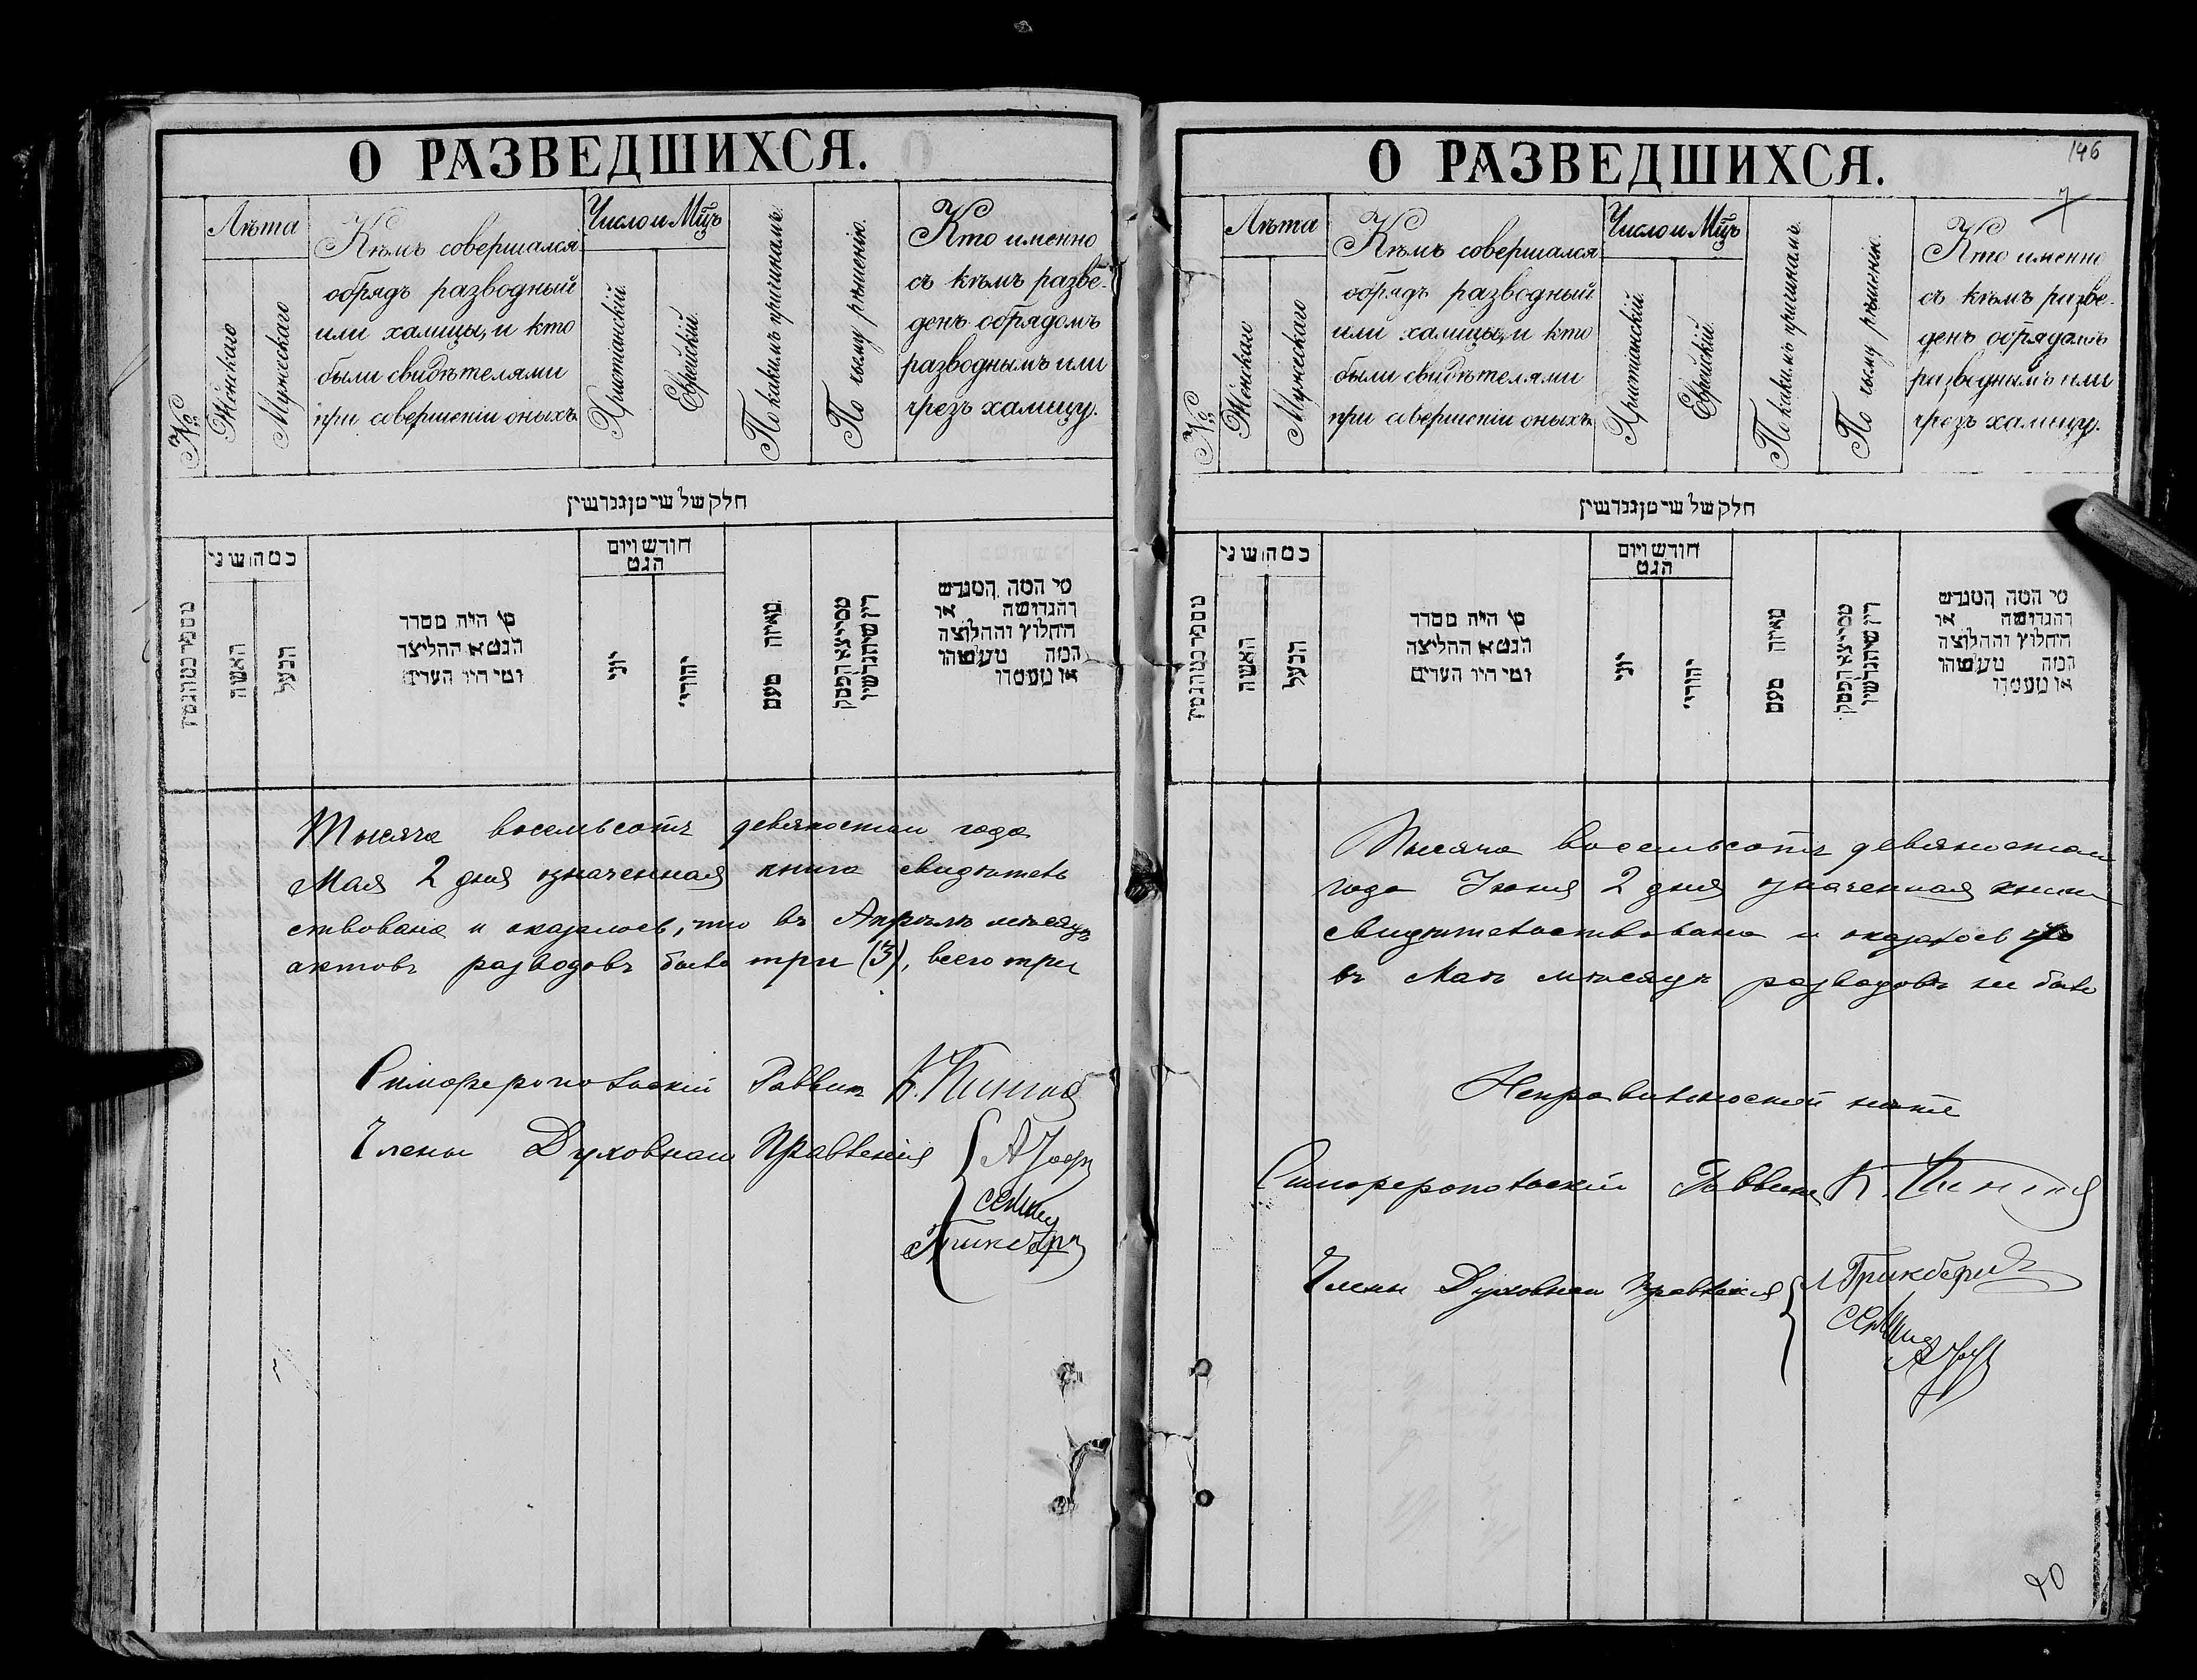 О РАЗВЕДШИХСЯ.
№
Лѣта
Женскаго
Мужескаго
Кѣмъ совершался
обрядъ разводный
или халицы, и кто
были свидѣтелями
при совершеніи оныхъ.
Число и Мцъ
Христіанскій.
Еврейскій.
По какимъ причинамъ.
По чьему рѣшенію.
Кто именно
съ кѣмъ разве-
денъ обрядомъ
разводнымъ или
чрезъ халицу.
חלק של שיטן גגרשין
כמה שני
האשה
הבעל
מי היה מסדר
הגט או החליצה
ומי היו העדים
חודש ויום
הגט
יוני
יהודי
מאיזה טעם
מי המה המגרש
והגרושה או
החלוץ והחלוצה
המה
Тысяча восемьсотъ девяностаго года
Мая 2 дня означенная книга свидѣтель
ствована и оказалось, что въ Апрѣлѣ мѣсяцѣ
актовъ разводовъ было три (3), всего три
Симферопольскій Раввинъ
Члены Духовнаго Правленія
О РАЗВЕДШИХСЯ.
146
7
№
Лѣта
Женскаго
Мужескаго
Кѣмъ совершался
обрядъ разводный
или халицы, и кто
были свидѣтелями
при совершеніи оныхъ.
Число и Мцъ
Христіанскій.
Еврейскій.
По какимъ причинамъ.
По чьему рѣшенію.
Кто именно
съ кѣмъ разве-
денъ обрядомъ
разводнымъ или
чрезъ халицу.
חלק של שיטן גגרשין
כמה שני
האשה
הבעל
מי היה מסדר
הגט או החליצה
ומי היו העדים
חודש ויום
הגט
יוני
יהודי
מאיזה טעם
מי המה המגרש
והגרושה או
החלוץ והחלוצה
המה
Тысяча восемьсотъ девяностаго
года Іюня 2 дня означенная книга
свидѣтельствована и оказалось что
въ Маѣ мѣсяцѣ разводовъ не было
Неправильностей нѣтъ
Симферопольскій Раввинъ
Члены Духовнаго Правленія
Л Гринбергъ
20